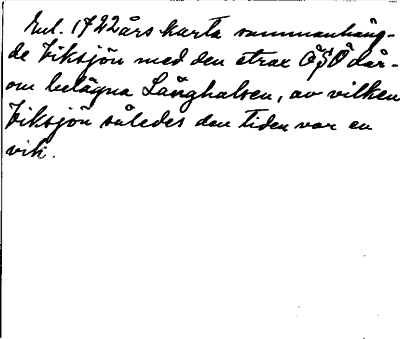 Enl. 1722 års karta sammanhäng-
de Viksjön med den strax ÖSÖ där-
om belägna Långhalsen, av vilken
Viksjön således den tiden var en
vik.